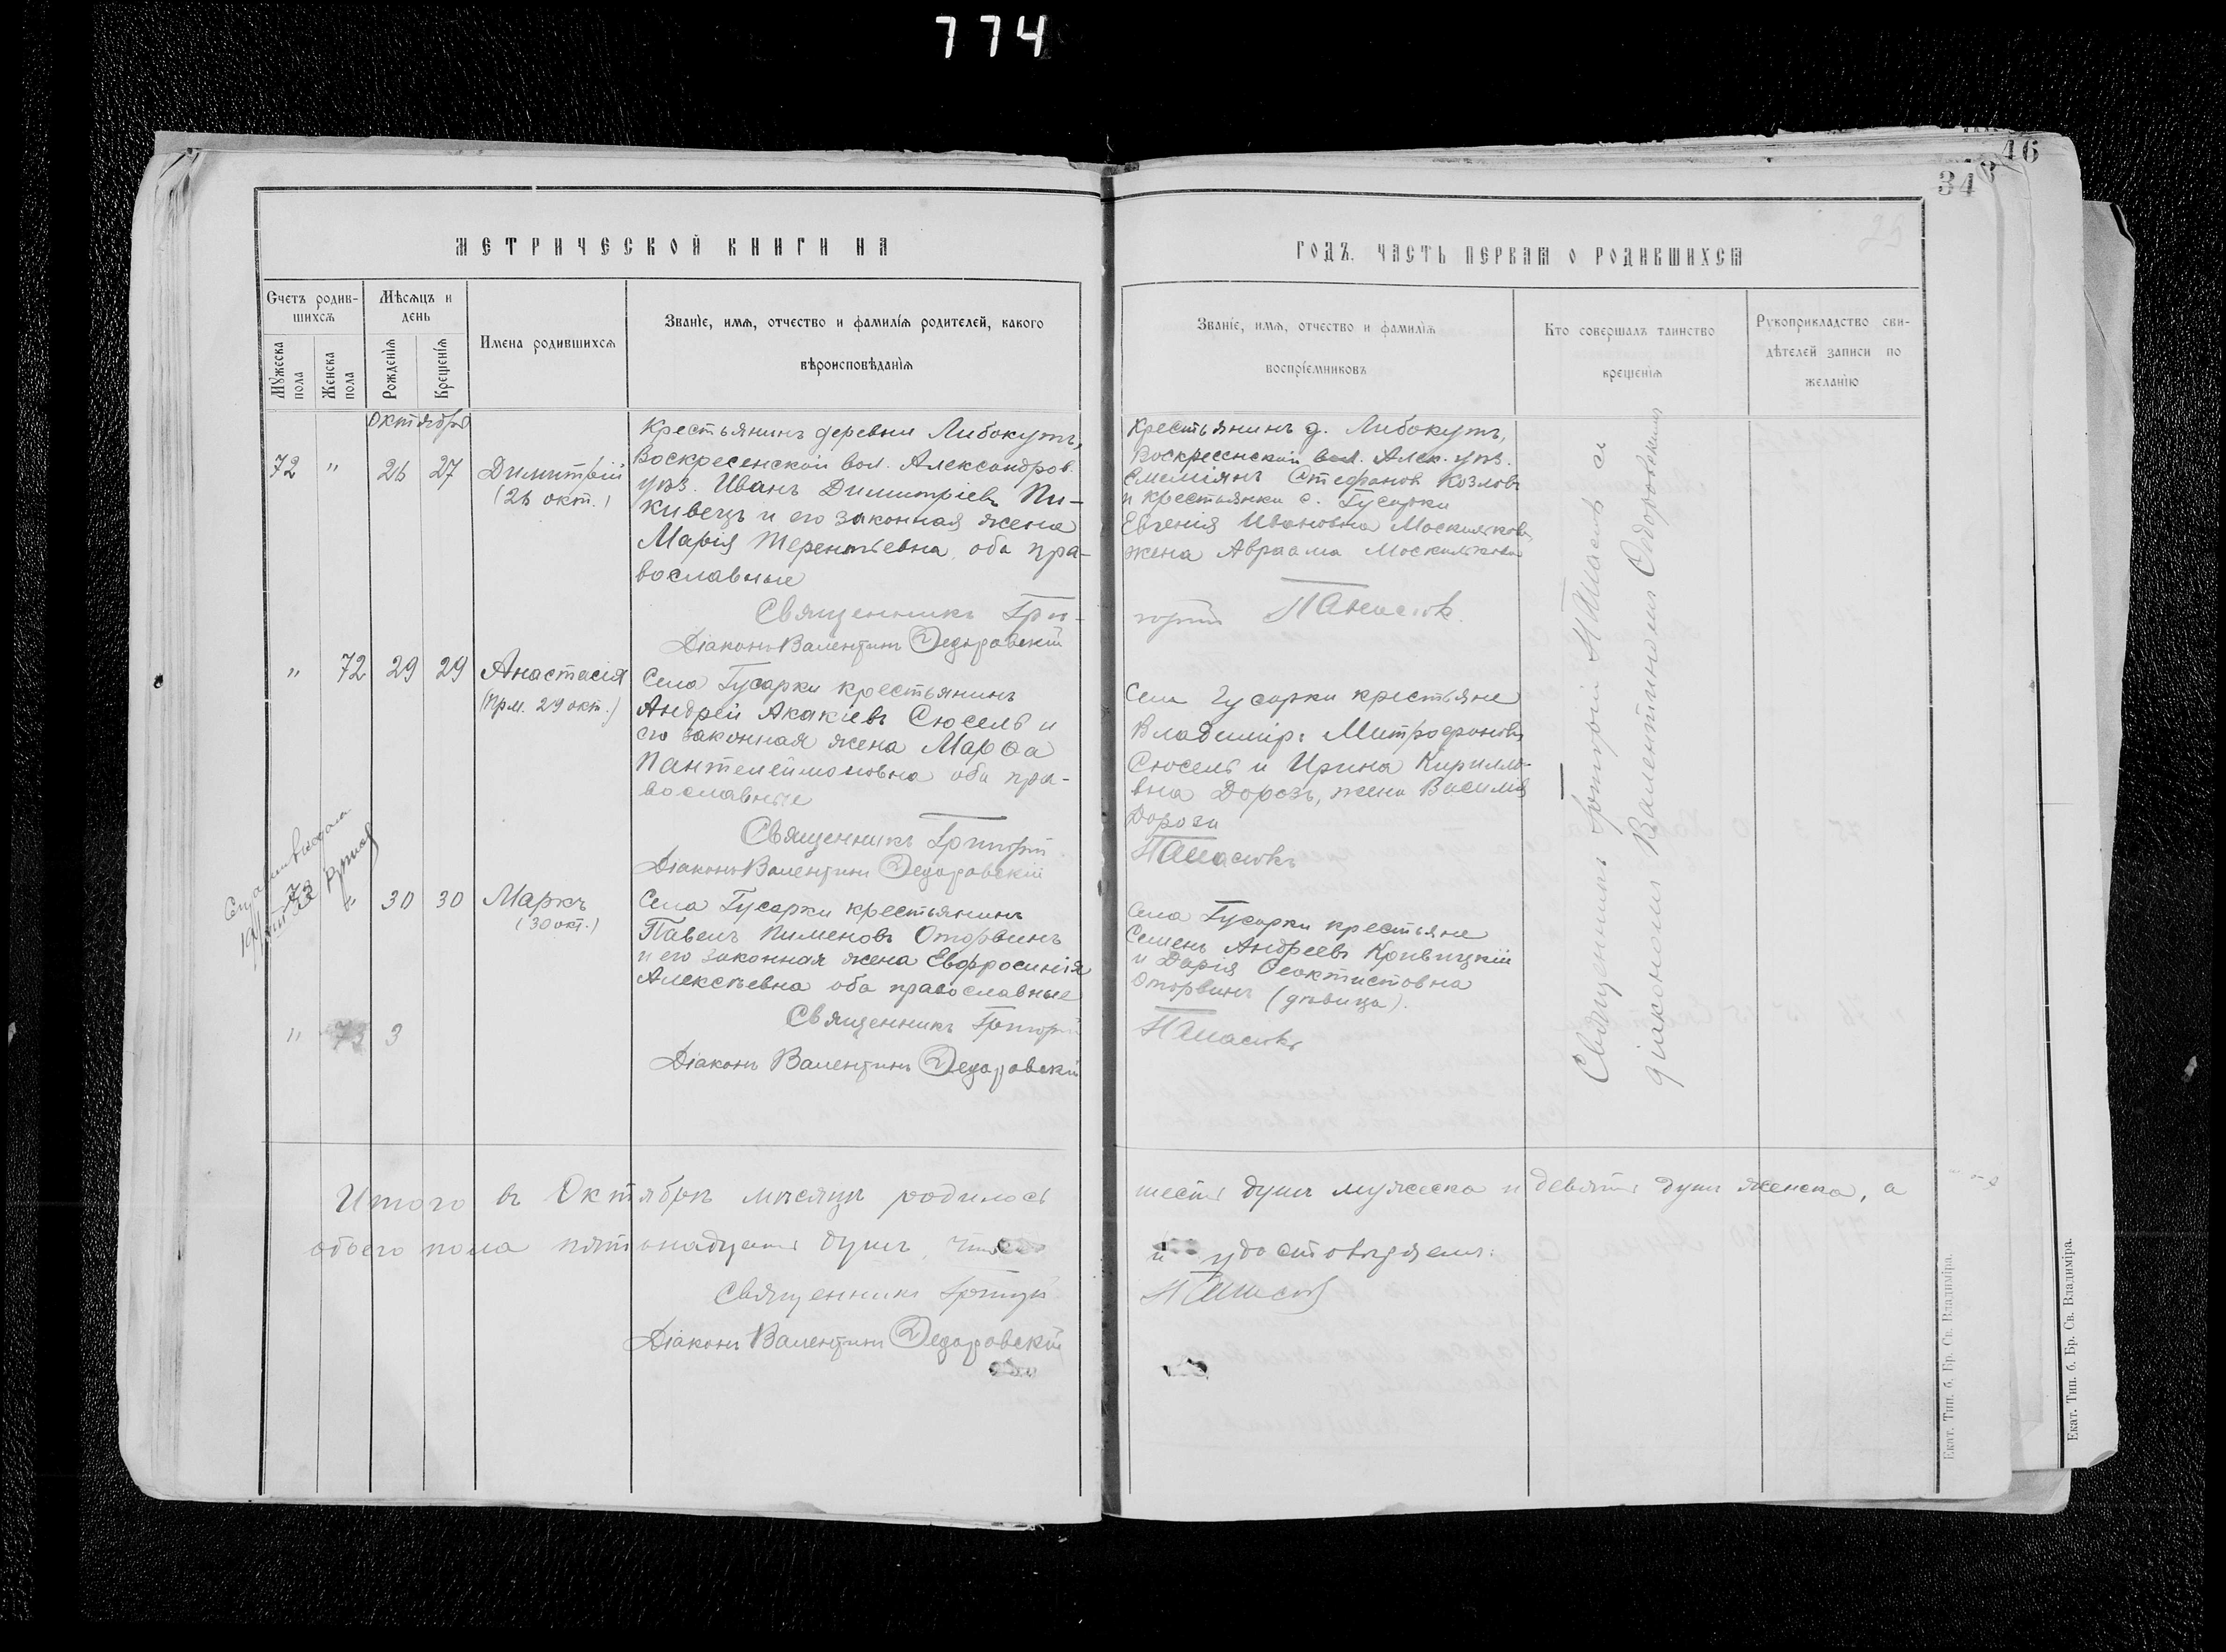 774
46
34
25
МЕТРИЧЕСКОЙ КНИГИ НА
ГОДЪ. ЧАСТЬ ПЕРВАЯ О РОДИВШИХСЯ
Счетъ родив-
шихся
Мѣсяцъ и
день
Мужеска
пола
Женска
пола
Рожденія
Крещенія
Имена родившихся
Званіе, имя, отчество и фамилія родителей, какого
вѣроисповѣданія
Званіе, имя, отчество и фамилія
воспріемниковъ
Кто совершалъ таинство
крещенія
Рукоприкладство сви-
дѣтелей записи по
желанію
Октября
72 " 26 27 Димитрій
(26 окт.)
Крестьянинъ деревни Любокутъ,
Воскресенской вол. Александров.
уѣз. Иванъ Димитріевъ Пи-
кивецъ и его законная жена
Марія Терентьевна, оба пра-
вославные
Священникъ Гри-
Діаконъ Валентинъ
Крестьянинъ д. Любокутъ,
Воскресенской вол. Алек. уѣз.
Стефановъ Козловъ
и крестьянка с. Гусарки
Евгенія Ивановна
жена Авраама
горій
" 72 29 29 Анастасія
(Прм. 29 окт.)
Села Гусарки крестьянинъ
Андрей Акакіевъ Сюсель и
его законная жена Марѳа
Пантелеймоновна оба пра-
вославные
Священникъ Григорій
Діаконъ Валентинъ
Села Гусарки крестьяне
Владиміръ Митрофановъ
Сюсель и Ирина Кирилло-
вна Дорозъ, жена Василія
Дороза
73 " 30 30 Маркъ
(30 окт.)
Села Гусарки крестьянинъ
Павелъ Пименовъ Оторвинъ
и его законная жена Евфросинія
Алексѣевна оба православные
Священникъ Григорій
Діаконъ Валентинъ
Села Гусарки крестьяне
Семенъ Андреевъ Кривицкій
и Дарія Ѳеоктистовна
Оторвинъ (дѣвица).
" 73 3
Священникъ Григорій съ
діакономъ Валентиномъ
Итого въ Октябрѣ мѣсяцѣ родилось
шесть душъ мужеска и девять душъ женска, а
обоего пола пятьнадцать душъ, что
и удостовѣряемъ:
Священникъ Григорій
Діаконъ Валентинъ
Екат. Тип. б. Бр. Св. Владиміра.
Екат. Тип. б. Бр. Св. Владиміра.